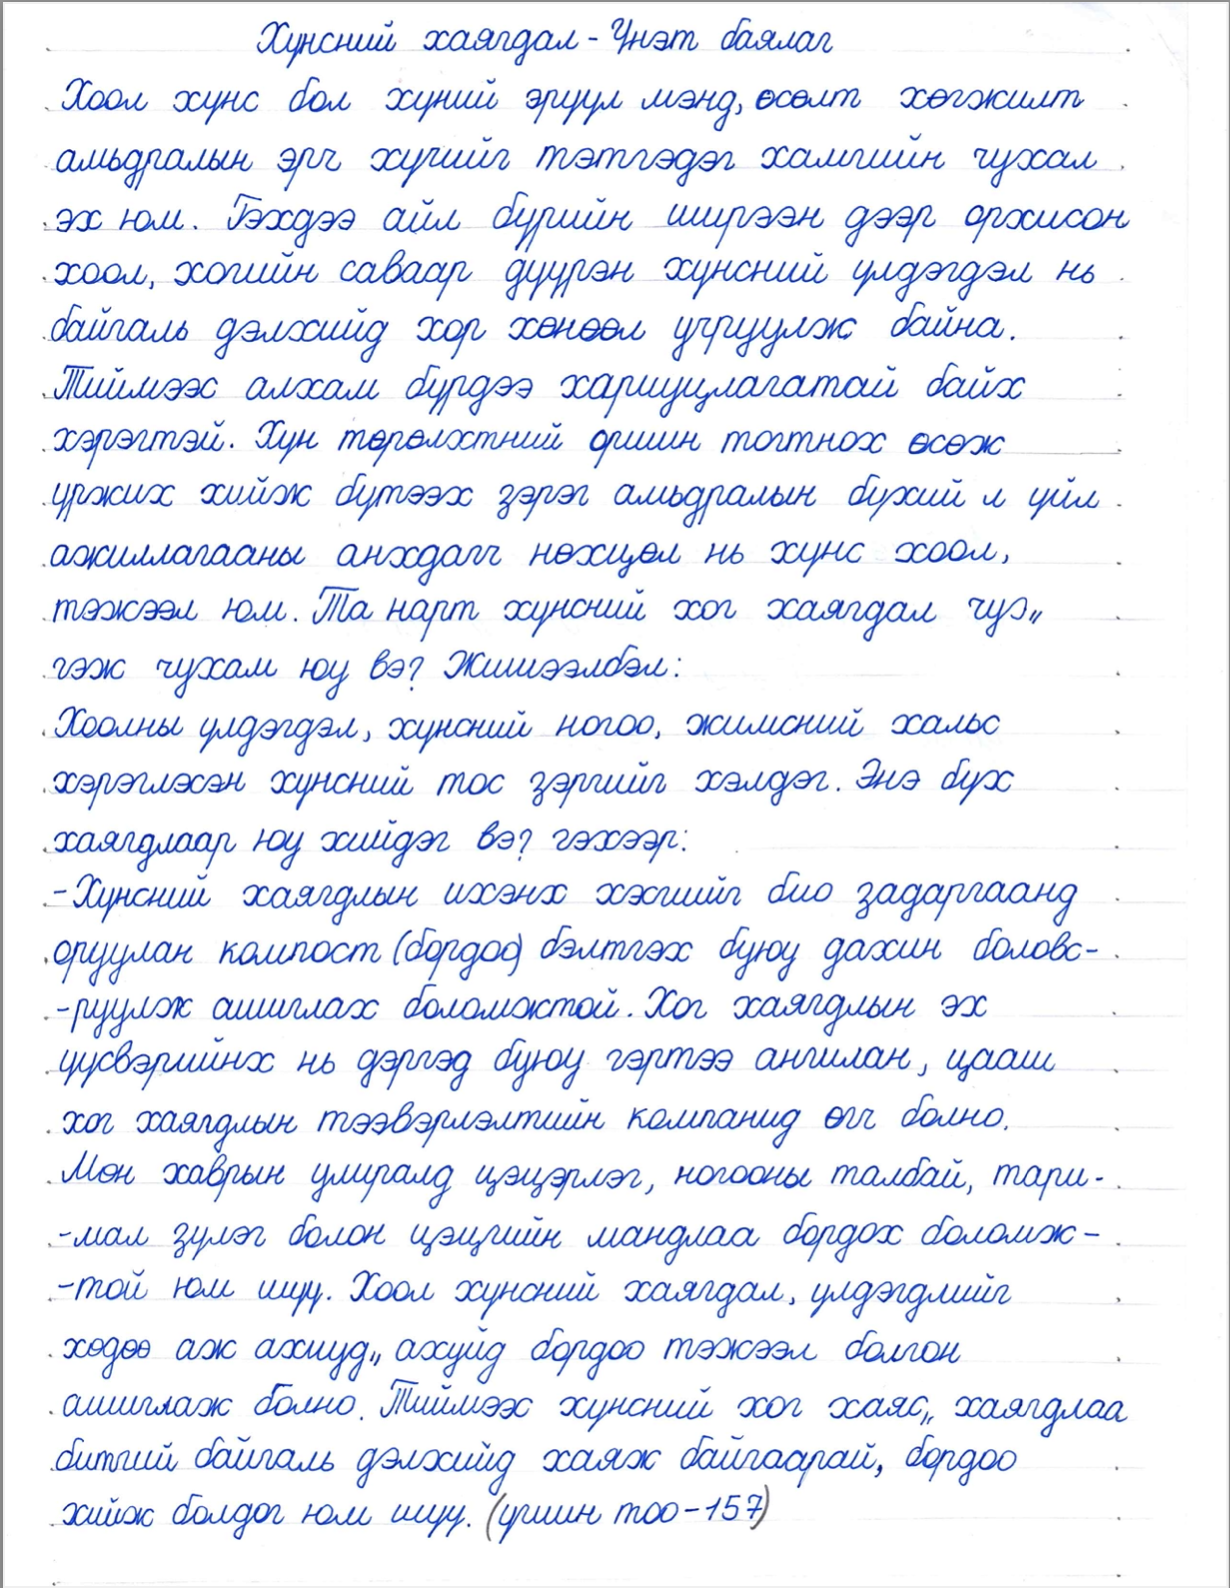 Хүнсний хаягдал - Үнэт баялаг
Хоол хүнс бол хүний эрүүл мэнд, өсөлт хөгжилт
амьдралын эрч хүчийг тэтгэдэг хамгийн чухал
эх юм. Гэхдээ айл бүрийн ширээн дээр орхисон
хоол, хогийн саваар дүүрэн хүнсний үлдэгдэл нь
байгаль дэлхийд хор хөнөөл учруулж байна.
Тиймээс алхам бүрдээ хариуцлагатай байх
хэрэгтэй. Хүн төрөлхтний оршин тогтнох өсөж
үржих хийж бүтээх зэрэг амьдралын бүхий л үйл
ажиллагааны анхдагч нөхцөл нь хүнс хоол,
тэжээл юм. Та нарт хүнсний хог хаягдал чуз„
гэж чухам юу вэ? Жишээлбэл:
Хоолны үлдэгдэл, хүнсний ногоо, жимсний хальс
хэрэглэсэн хүнсний тос зэргийг хэлдэг. Энэ бүх
хаягдлаар юу хийдэг вэ? гэхээр:
-Хүнсний хаягдлын ихэнх хэсгийг био задаргаанд
оруулан компост (бордоо) бэлтгэх буюу дахин боловс-
-руулж ашиглах боломжтой. Хог хаягдлын эх
үүсвэрийнх нь дэргэд буюу гэртээ ангилан, цааш
хог хаягдлын тээвэрлэлтийн компанид өгч болно.
Мөн хаврын улиралд цэцэрлэг, ногооны талбай, тари-
-мал зүлэг болон цэцгийн мандлаа бордох боломж-
-той юм шүү. Хоол хүнсний хаягдал, үлдэгдлийг
хөдөө аж ахиуд„ ахуйд бордоо тэжээл болгон
ашиглаж болно. Тиймээс хүнсний хог хаяс„ хаягдлаа
битгий байгаль дэлхийд хаяж байгаарай, бордоо
хийж болдог юм шүү. (үгийн тоо-157)